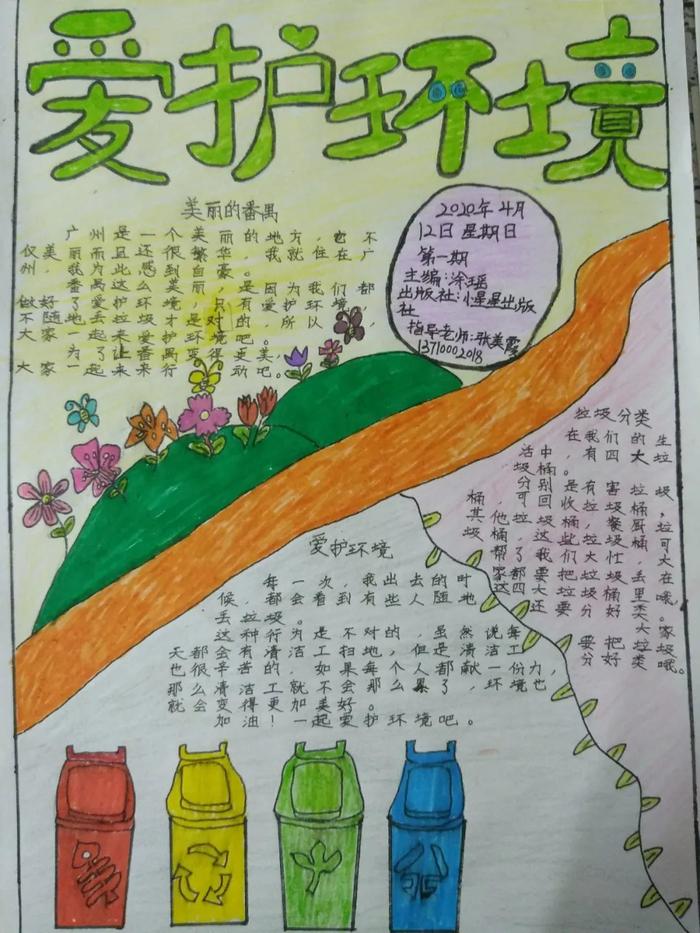 爱护环境
美丽的番禺
广州是一个美丽的地方，它不
仅美丽而且还很繁华，我就住在广
州，我为此感到自豪。
番禺这么美丽，是因为我们都
做好了爱护环境，只有爱护环境，
不随地去垃圾才是对的，所以，
大家一起来爱护环境吧。
为了让番禺变得更美，
大家一起来来行动吧。
2020年4月
12日 星期日
第一期
主编：涂瑶
出版社：小星星出版
社
指导老师：张美霞
1371000 2018
垃圾分类
在我们的生
活中，有四大垃
圾桶。
分别是有害垃圾
桶，可回收垃圾桶，
其他垃圾桶，餐厨垃
圾桶，这些垃圾桶可
帮了我们大忙，大
家都要把垃圾丢在
这四大垃圾桶里哦。
还要分好类。
大家
要把垃圾
分好类哦。
爱护环境
每一次，我出去的时
候，都会看到有些人随地
丢垃圾。
这种行为是不对的，虽然说每
天都会有清洁工扫地，但是清洁工
也很辛苦的，如果每个人都献一份力，
那么清洁工就不会那么累了，环境也
就会变得更加美好。
加油！一起爱护环境吧。